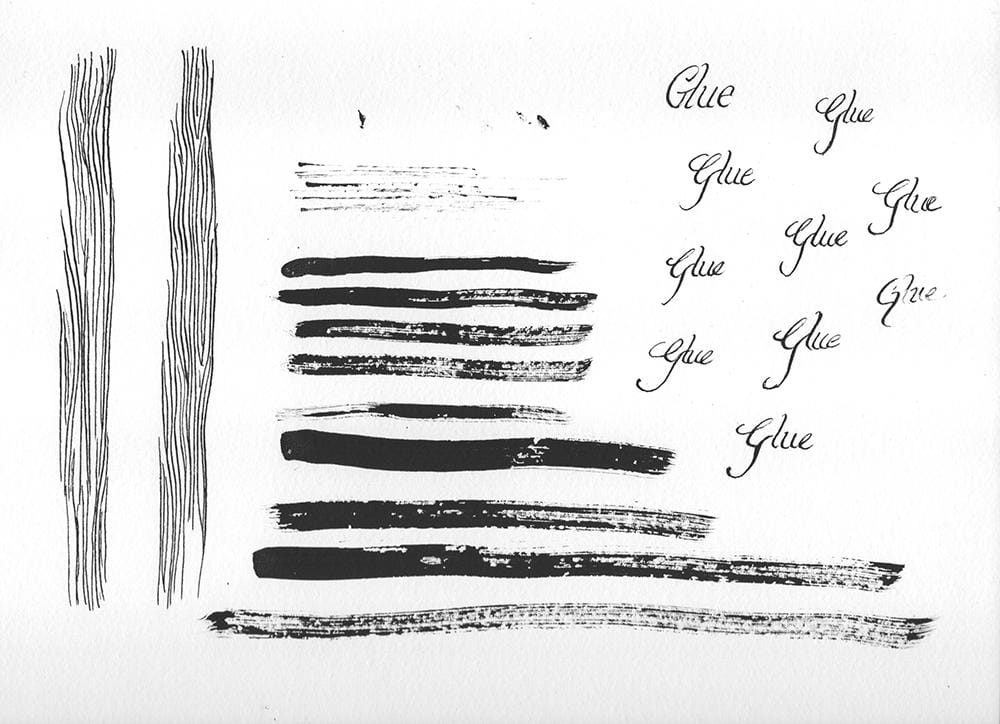 Glue
Glue
Glue
Glue
Glue
Glue
Glue
Glue
Glue
Glue